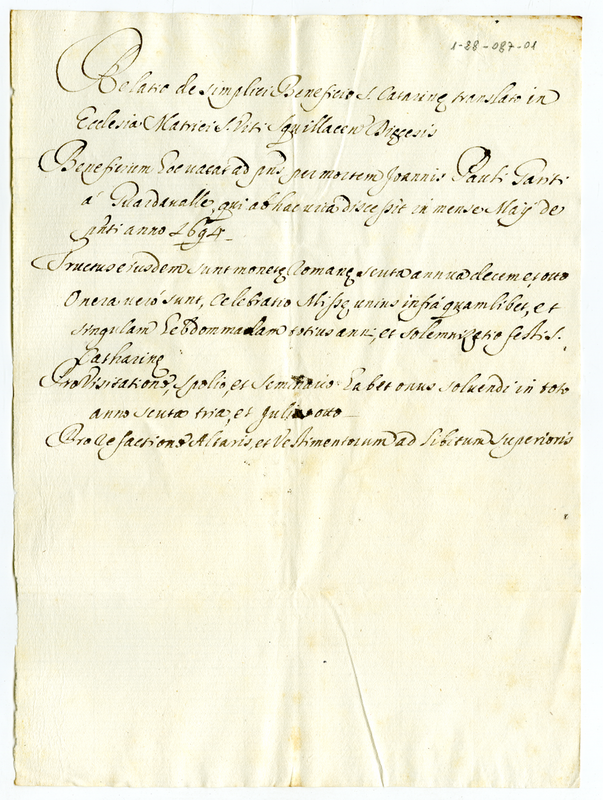 1-28-087-01
Relatio de simplici Beneficio S. Catarinę translato in
Ecclesia Matrici S. Viti Squillacen Dięcesis
Beneficium hoc vacat ad pñs per mortem Joannis Pauli
à Guardavalle, qui ab hac vita discessit in mense Maij de
pñti anno 1694 –
Fructus eiusdem sunt monetę Romanę scuta annua decem et, octo
Onera verò sunt, Celebratio Missę unius infrà quamlibet, et
singulam hebdommadam totius anni, et solemnizatio festi S.
Catharinę
Pro Visitatione, spolio, et seminario habet onus solvendi in toto
anno scuta tria, et Julia octo –
Pro refectione Altaris, et Vestimentorum ad libitum Superioris